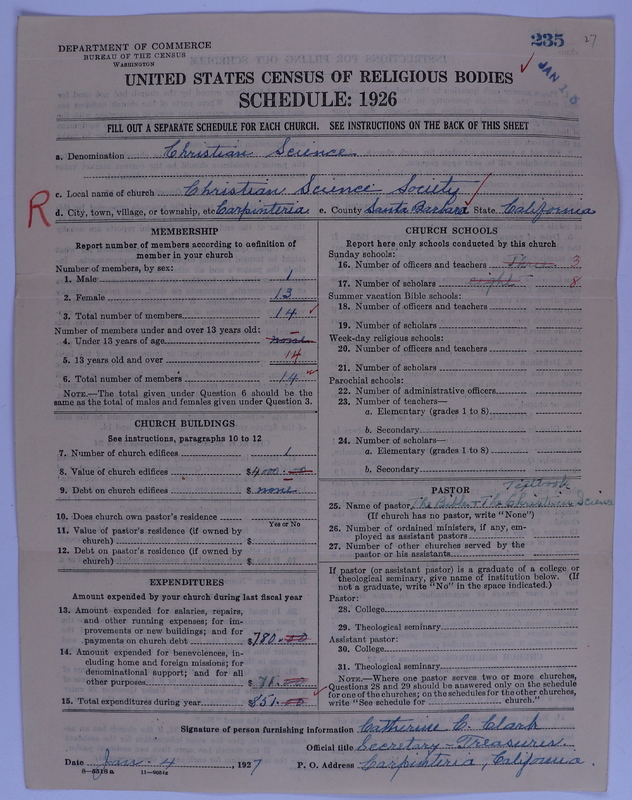 235 27
JAN
DEPARTMENT OF COMMERCE
BUREAU OF THE CENSUS
WASHINGTON
UNITED STATES CENSUS OF RELIGIOUS BODIES
SCHEDULE: 1926
FILL OUT A SEPARATE SCHEDULE FOR EACH CHURCH. SEE INSTRUCTIONS ON THE BACK OF THIS SHEET
a. Denomination Christian Science
c. Local name of church Christian Science Society
R
d. City, town, village, or township, etc Carpinteria e. County Santa Barbara State California
MEMBERSHIP
Report number of members according to definition of
member in your church
Number of members, by sex:
1. Male 1
2. Female 13
3. Total number of members 14
Number of members under and over 13 years old:
4. Under 13 years of age none –
5. 13 years old and over 14
6. Total number of members 14
NOTE.—The total given under Question 6 should be
same as the total of males and females given under Question 3.
CHURCH BUILDINGS
See instructions, paragraphs 10 to 12
7. Number of church edifices 1
8. Value of church edifices $4000.00
9. Debt on church edifices $ none
10. Does church own pastor's residence
Yes or No
11. Value of pastor's residence (if owned by
church) $
12. Debt on pastor's residence (if owned by
church) $
EXPENDITURES
Amount expended by your church during last fiscal year
13. Amount expended for salaries, repairs,
and other running expenses; for im-
provements or new buildings; and for
payments on church debt $780.00
14. Amount expended for benevolences, in-
cluding home and foreign missions; for
denominational support; and for all
other purposes $ 71.00
15. Total expenditures during year $851.00
CHURCH SCHOOLS
Report here only schools conducted by this church
Sunday schools:
16. Number of officers and teachers Three 3
17. Number of scholars eight 8
Summer vacation Bible schools:
18. Number of officers and teachers
19. Number of scholars
Week-day religious schools:
20. Number of officers and teachers
21. Number of scholars
Parochial schools:
22. Number of administrative officers
23. Number of teachers—
a. Elementary (grades 1 to 8)
b. Secondary
24. Number of scholars—
a. Elementary (grades 1 to 8)
b. Secondary
PASTOR Textbook
25. Name of pastor The Bible + The Christian Science
(If church has no pastor, write "None")
26. Number of ordained ministers, if any, em-
ployed as assistant pastors
27. Number of other churches served by the
pastor or his assistants
If pastor (or assistant pastor) is a graduate of a college or
theological seminary, give name of institution below. (If
not a graduate, write "No" in the space indicated.)
Pastor:
28. College
29. Theological seminary
Assistant pastor:
30. College
31. Theological seminary
NOTE.—Where one pastor serves two or more churches,
Questions 28 and 29 should be answered only on the schedule
for one of the churches; on the schedules for the other churches,
write "See schedule for church."
Signature of person furnishing information Catherine C. Clark
Official title Secretary - Treasurer.
Date Jan. 4, 1927 P. O. Address Carpinteria, California.